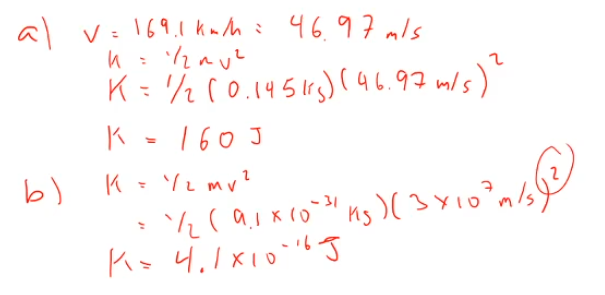 a) v = 169.1 km/h = 46.97 m/s
K = 1/2 mv²
K = 1/2 (0.145 kg)(46.97 m/s)²
K = 160 J
b) K = 1/2 mv²
= 1/2 (9.1 x 10⁻³¹ Kg)(3 x 10⁷ m/s)²
K = 4.1 x 10⁻¹⁶ J